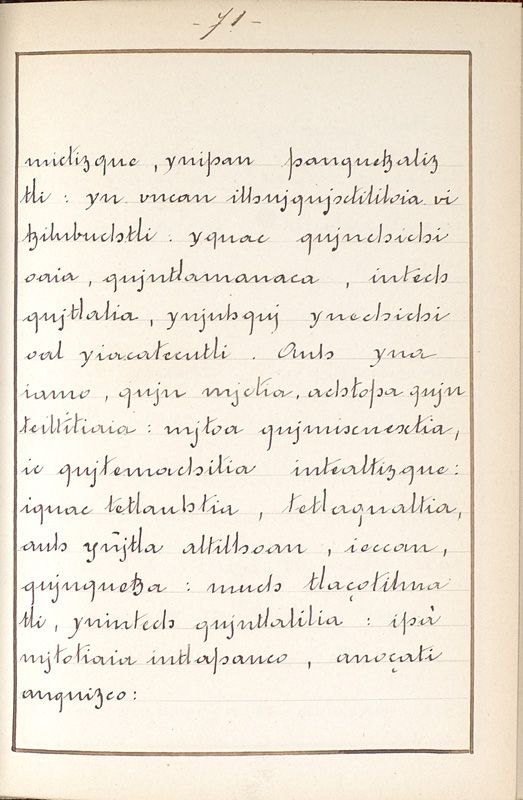 - 71 -
mictizque, ynipan panquetzaliz
tli: yn vncan ilhujqujxtililoia vi
tzilubuchtli. yquac qujnchichi
oaia, qujntlamanaca, intech
qujtlalia, ynjuhquj ynechichi
oal yiacatecutli. Auh yna
iamo, qujn mjctia, achtopa qujn
teittitiaia: mjtoa qujmixnextia,
ic qujtemachitia intealtizque:
iquac tetlauhtia, tetlaqualtia,
auh yñjtla altilhoan, ieccan,
qujnquetza: much tlaçotilma
tli, ynintech qujntlalilia: ipà
mjtotiaia intlapanco, anoçati
anquizco: